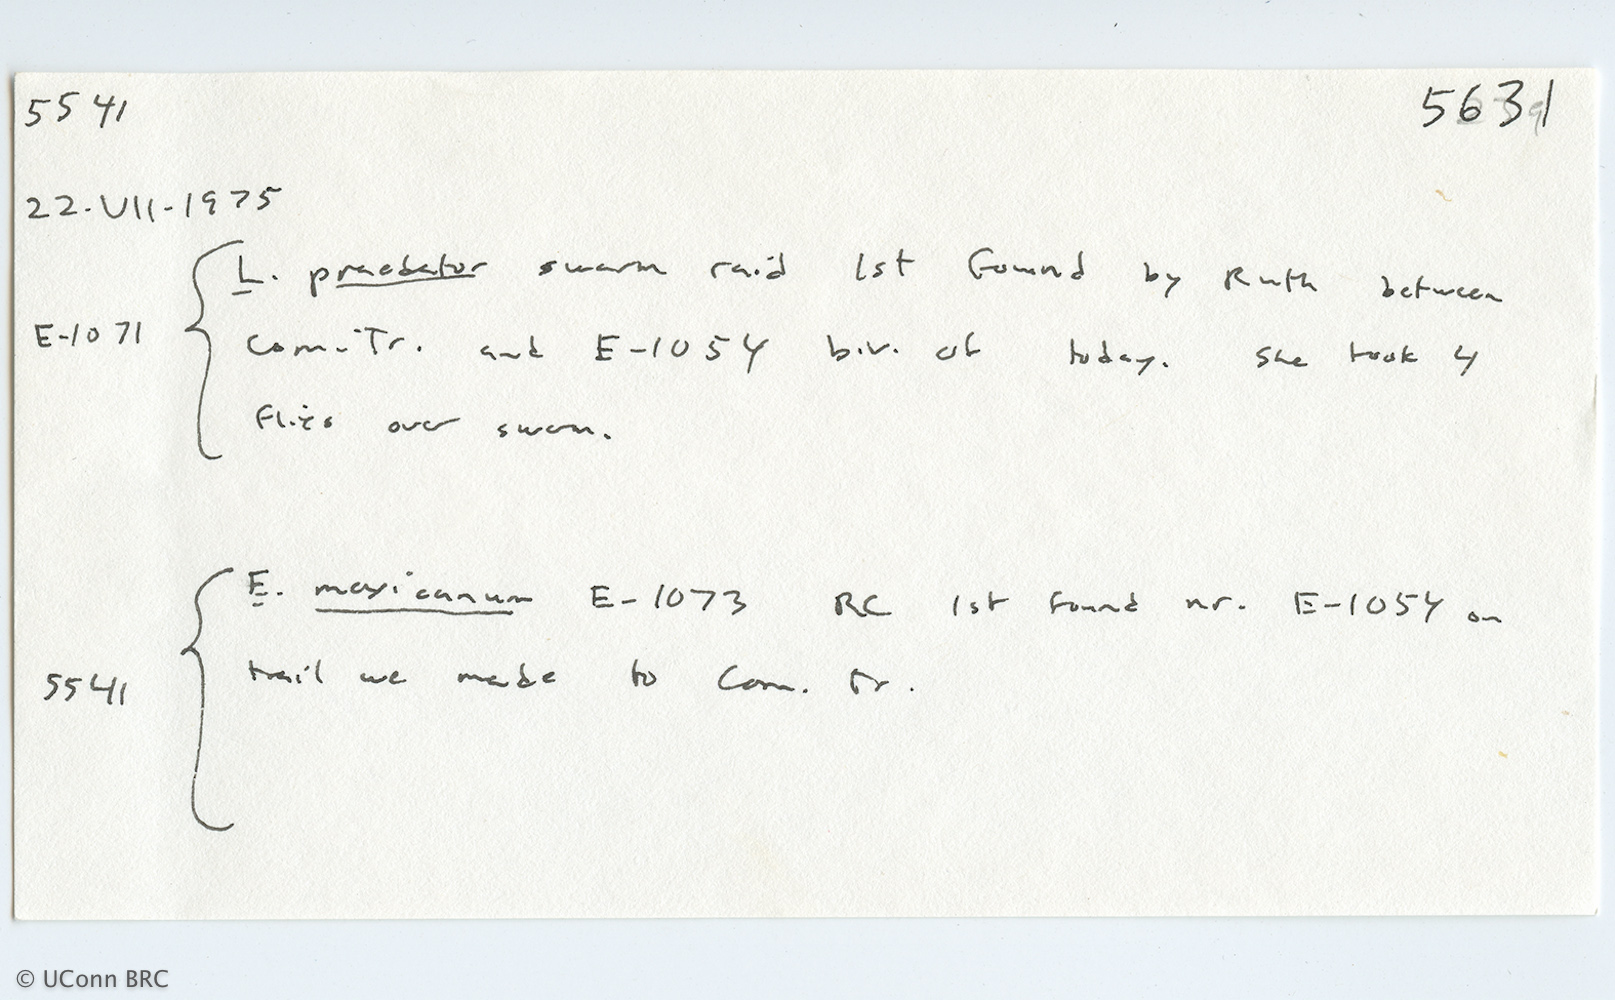 5541
5631
22-VII-1975
E-1071
L. praedator swarm raid 1st found by Ruth between
Com. Tr. and E-1054 biv. of today. She took 4
flies over swarm.
5541
E. mexicanum E-1073 RC 1st found nr. E-1054 on
trail we made to Com. Tr.
© UConn BRC